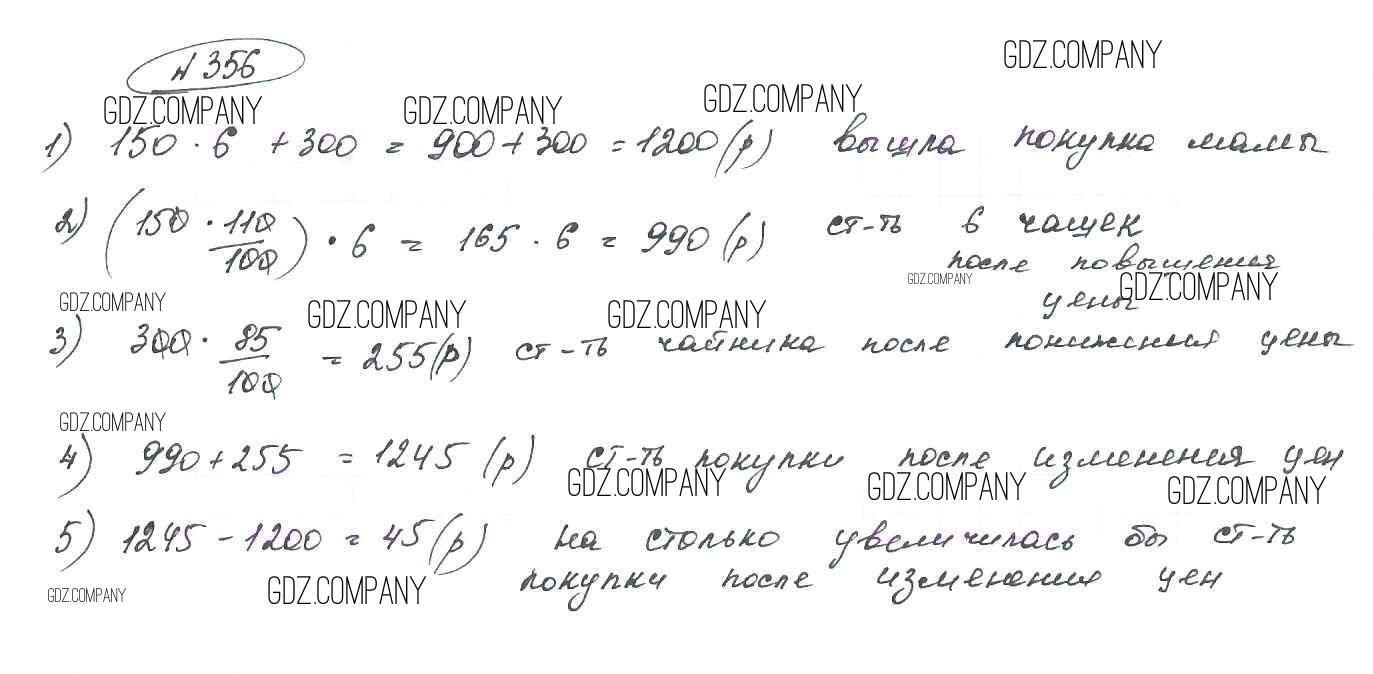 № 356
GDZ.COMPANY
GDZ.COMPANY GDZ.COMPANY GDZ.COMPANY
1) 150 · 6 + 300 = 900 + 300 = 1200 (р) вышла покупка мамы
2) (150 · 110/100) · 6 = 165 · 6 = 990 (р) ст-ть 6 чашек
после повышения
GDZ.COMPANY GDZ.COMPANY
цены
GDZ.COMPANY GDZ.COMPANY GDZ.COMPANY
3) 300 · 85/100 = 255 (р) ст-ть чайника после понижения цены
GDZ.COMPANY
4) 990 + 255 = 1245 (р) ст-ть покупки после изменения цен
GDZ.COMPANY GDZ.COMPANY GDZ.COMPANY
5) 1245 - 1200 = 45 (р) на столько увеличилась бы ст-ть
покупки после изменения цен
GDZ.COMPANY GDZ.COMPANY